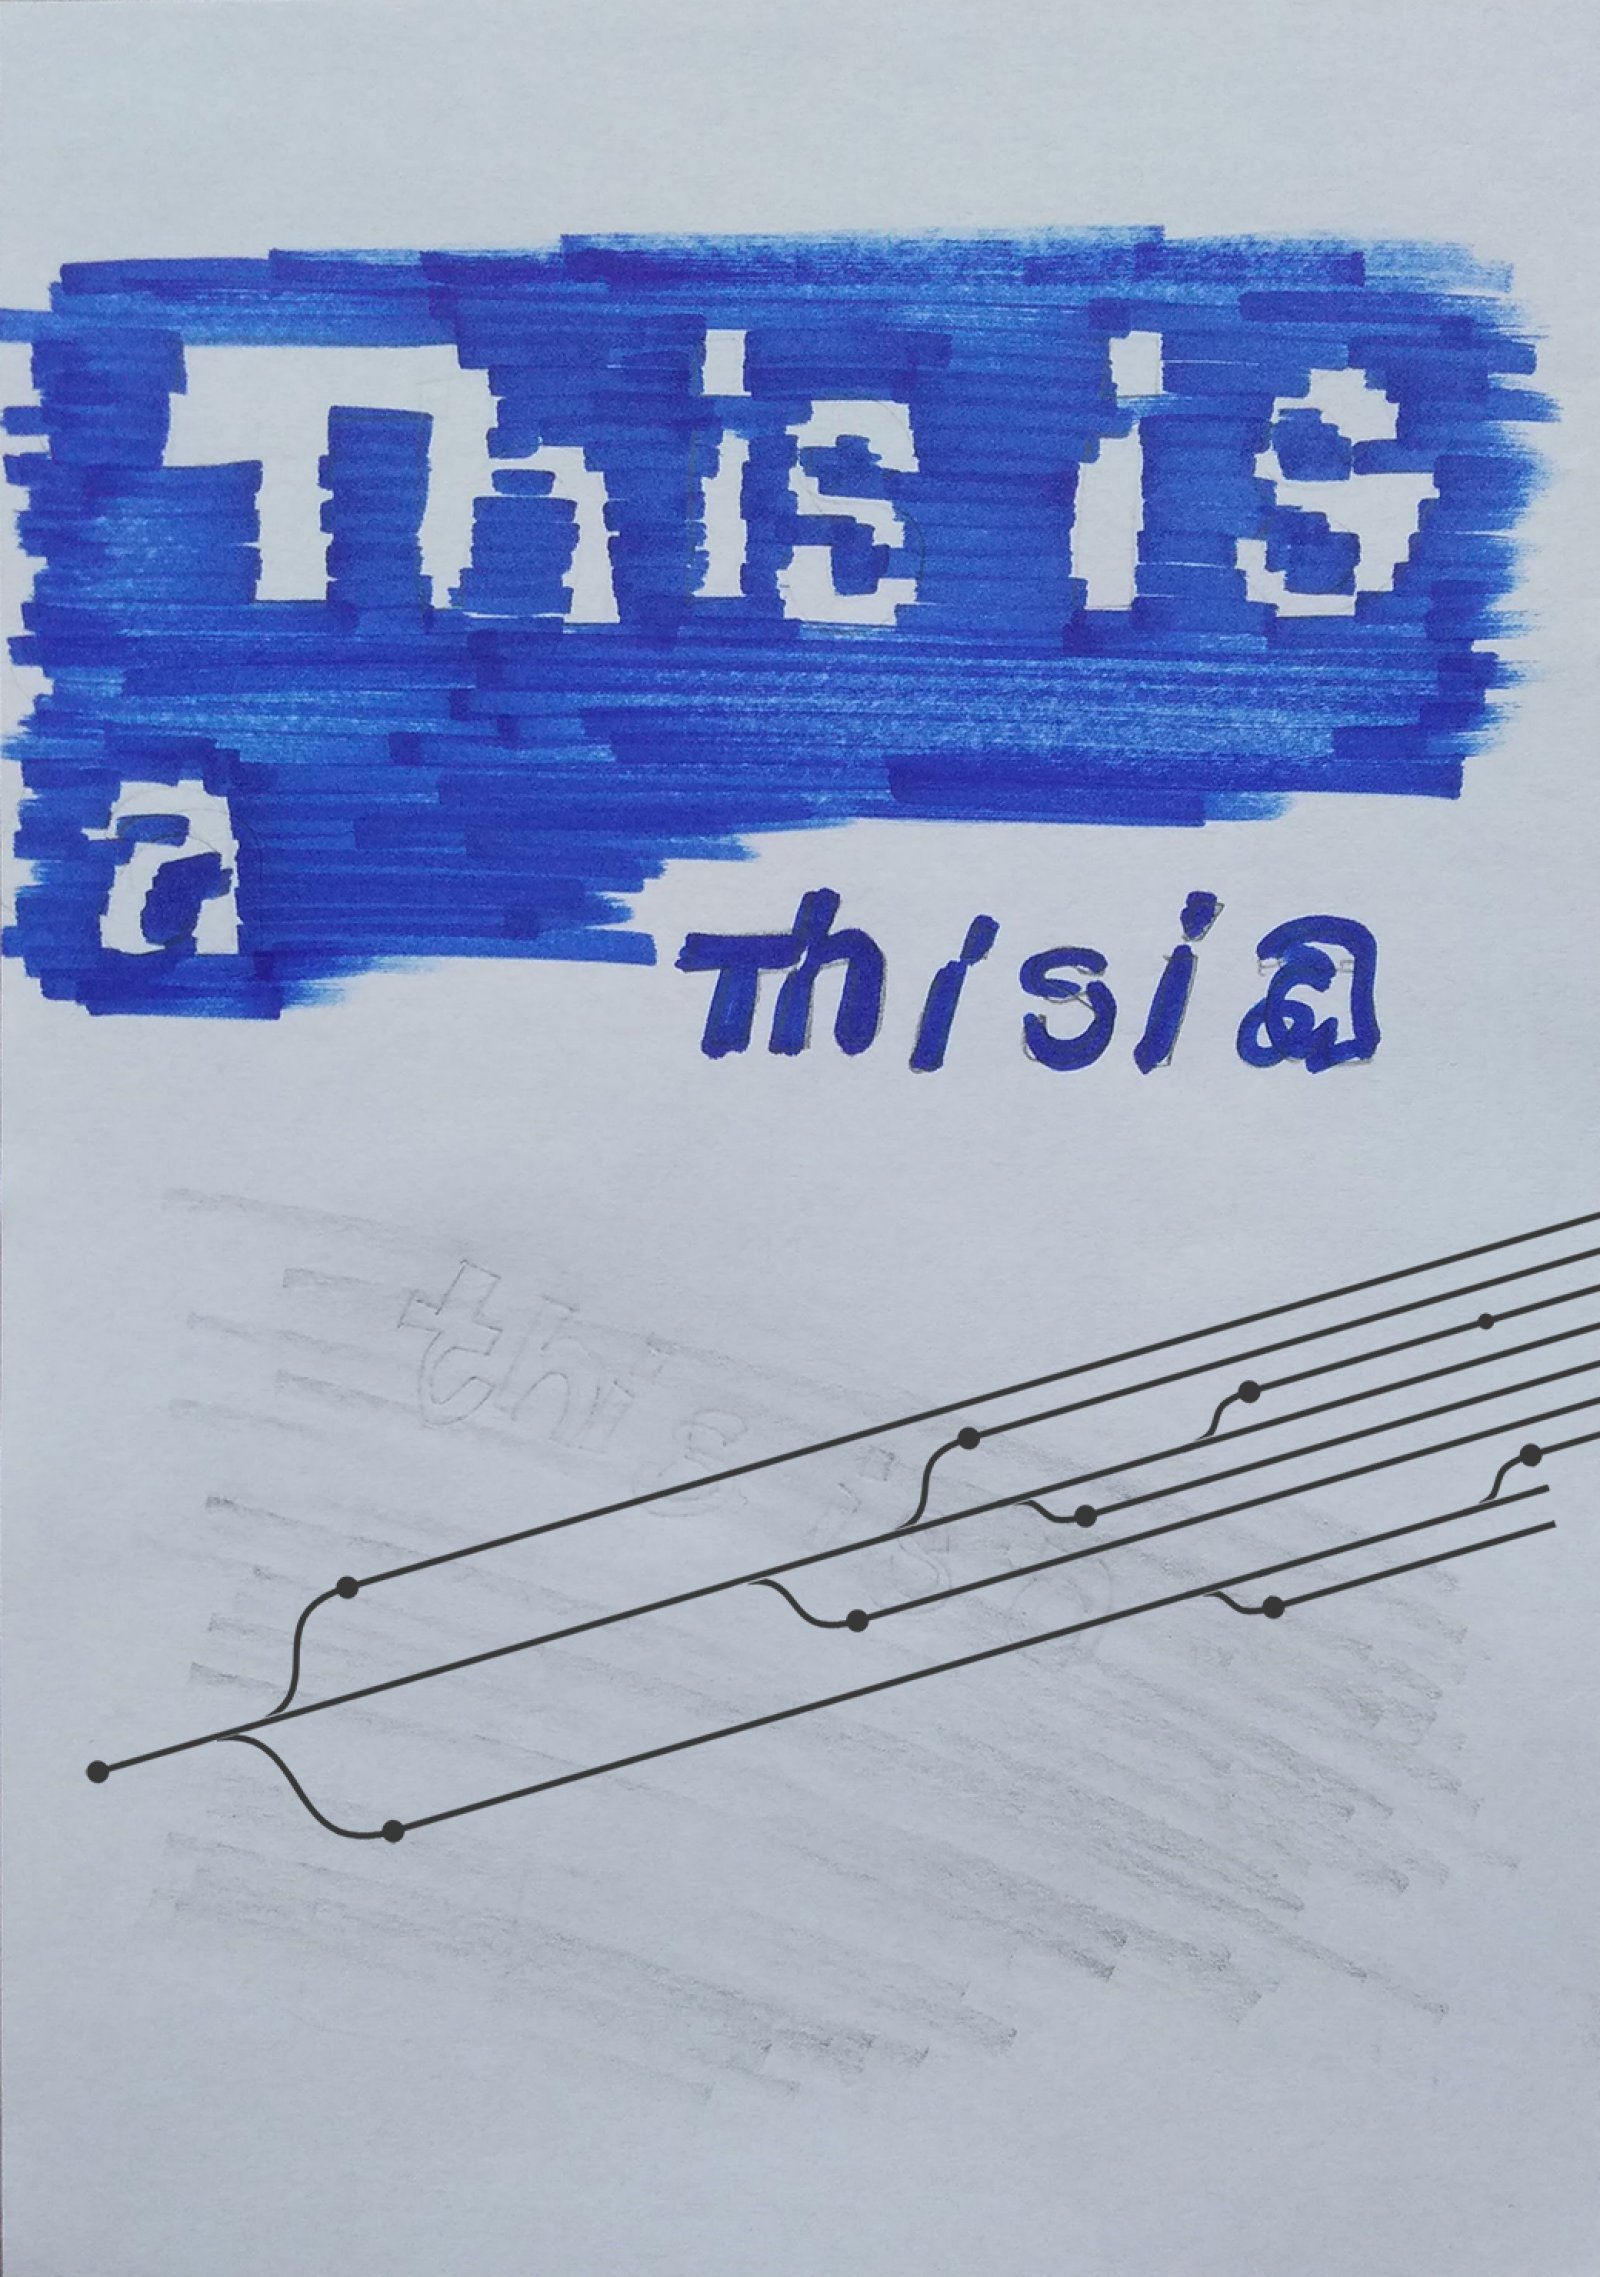 This is
a
This i a
this is a